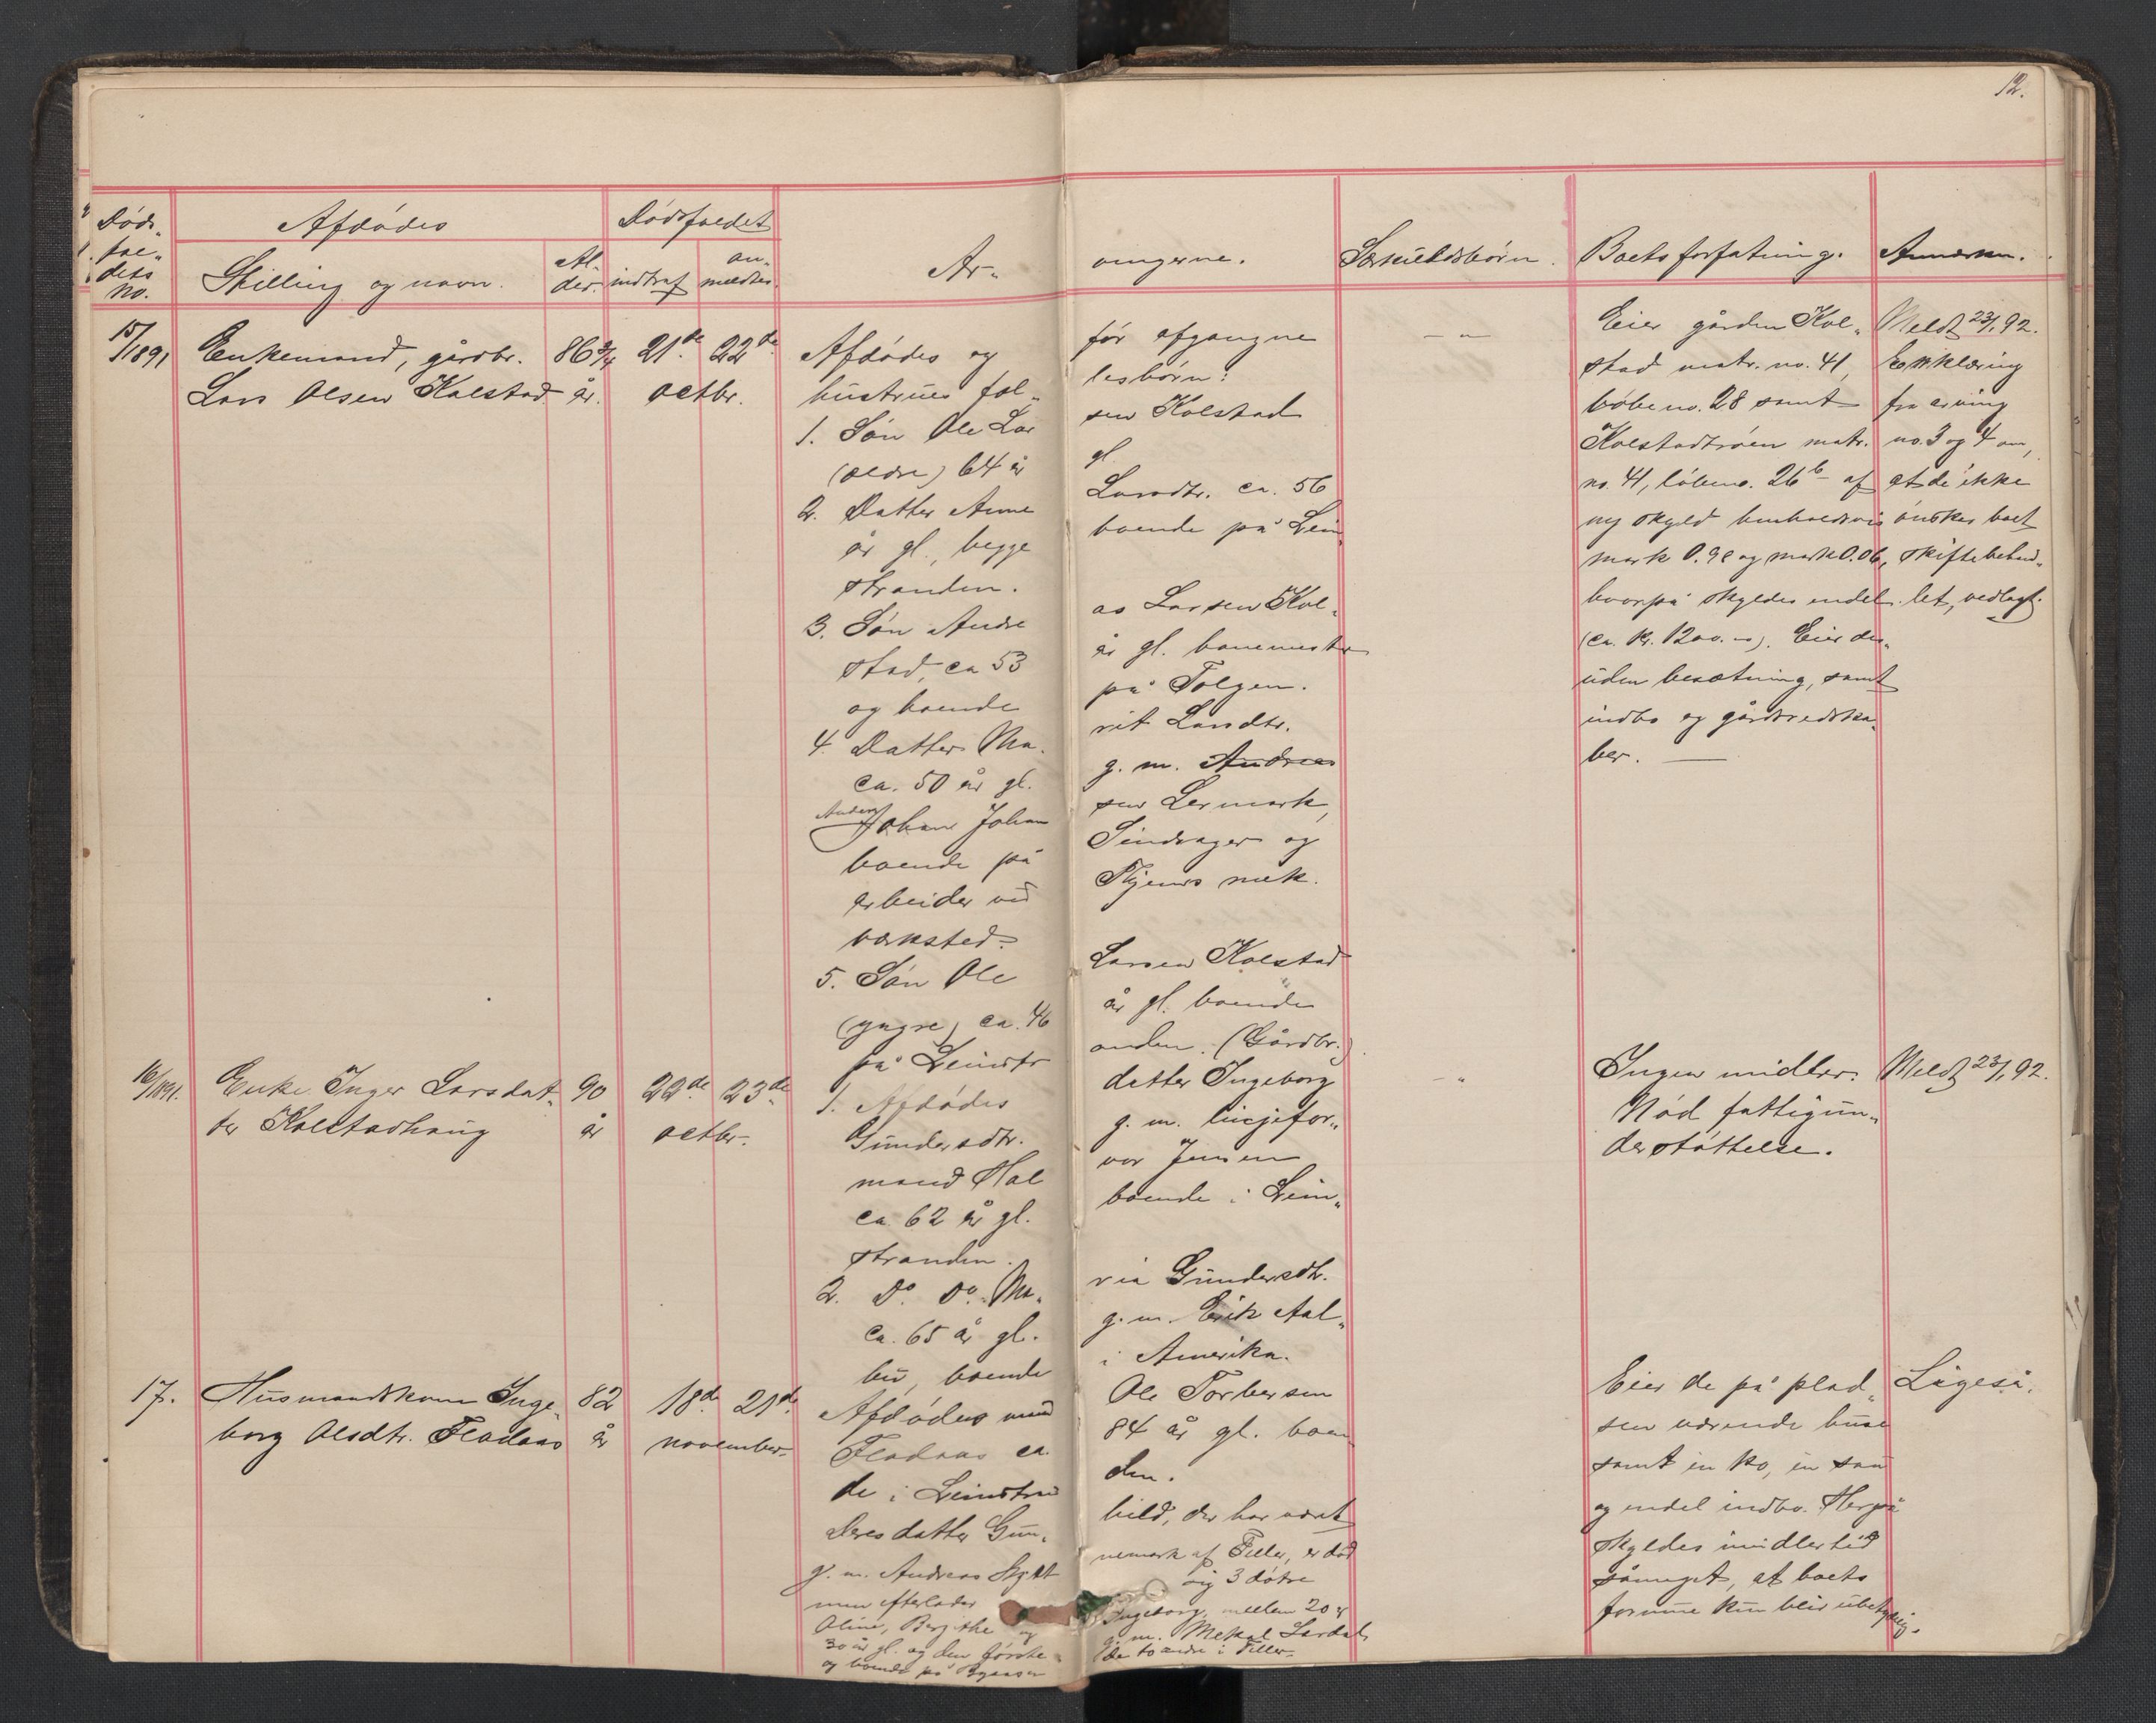 12.
Døds-
fal-
dets
no.
Afdødes
Stilling og navn.
Al-
der.
Dødsfaldet
indtraf
an-
meldtes.
Ar-
vingerne.
Særkuldsbørn.
Boets forfatning.
Anmærkn.
15/1891
Enkemand, gårdbr.
Lars Olsen Kolstad
86 3/4
år.
21de 22de
octbr.
Afdødes og før afgangne
hustrues fæl- lesbørn:
1. Søn Ole Lar sen Kolstad
(ældre) 64 år gl
2. Datter Anne Larsdtr. ca. 56
år gl., begge boende på Lein-
stranden.
3. Søn Andre as Larsen Kol-
stad, ca 53 år gl. banemester
og boende på Tolgen.
4. Datter Ma- rit Larsdtr.
ca. 50 år gl. g. m. Andreas
Anders Johan Johan sen Lermark,
boende på Sindsager og
arbeider ved Thjems mek.
værksted.
5. Søn Ole Larsen Kolstad
(yngre) ca. 46 år gl. boende
på Leinstr anden. (Gårdbr.)
- " -
Eier gården Kol-
stad matr. no. 41,
løbeno. 28 samt
Kolstadtrøen matr.
no. 41, løbeno. 26b af
ny skyld henholdsvis
mark 0.98 og mark 0.06,
hvorpå skyldes endel
(ca. kr. 1200.-). Eier des-
uden besætning, samt
indbo og gårdsredska-
ber. —
Meldt 23/1 92.
Erklæring
fra arving
no. 3 og 4 om,
at de ikke
ønsker boet
skiftebehand-
let, vedlagt.
16/1891.
Enke Inger Larsdat-
ter Kolstadhaug
90
år
22de 23de
octbr.
1. Afdødes datter Ingeborg
Gundersdtr. g. m. linjefor-
mand Hal vor Jensen
ca. 62 år gl. boende i Lein-
stranden.
2. Do. Do. Ma- ria Gundersdtr.
ca. 65 år gl. g. m. Erik Aal-
bu, boende i Amerika.
- "
Ingen midler.
Nød fattigun-
derstøttelse.
Meldt 23/1 92.
17.
Husmandskone Inge-
borg Olsdtr. Fladaas
82
år
18de 21de
november.
Afdødes mand Ole Torbersen
Fladaas ca. 84 år gl. boen-
de i Leinstran den.
Deres datter Gun- hild, der har været
g. m. Andreas Skjet nemark af Tiller, er død
men efterlader sig 3 døtre
Oline, Bergithe og Ingeborg, mellem 20 og
30 år gl. og den første g. m. Mekal Lerdal
og boende på Byaasen de to andre i Tiller.
Eier de på plad-
sen værende huse
samt en ko, en sau
og endel indbo. Herpå
skyldes imidlertid
såmeget, at boets
formue kun blir ubetydelig.
Ligeså.